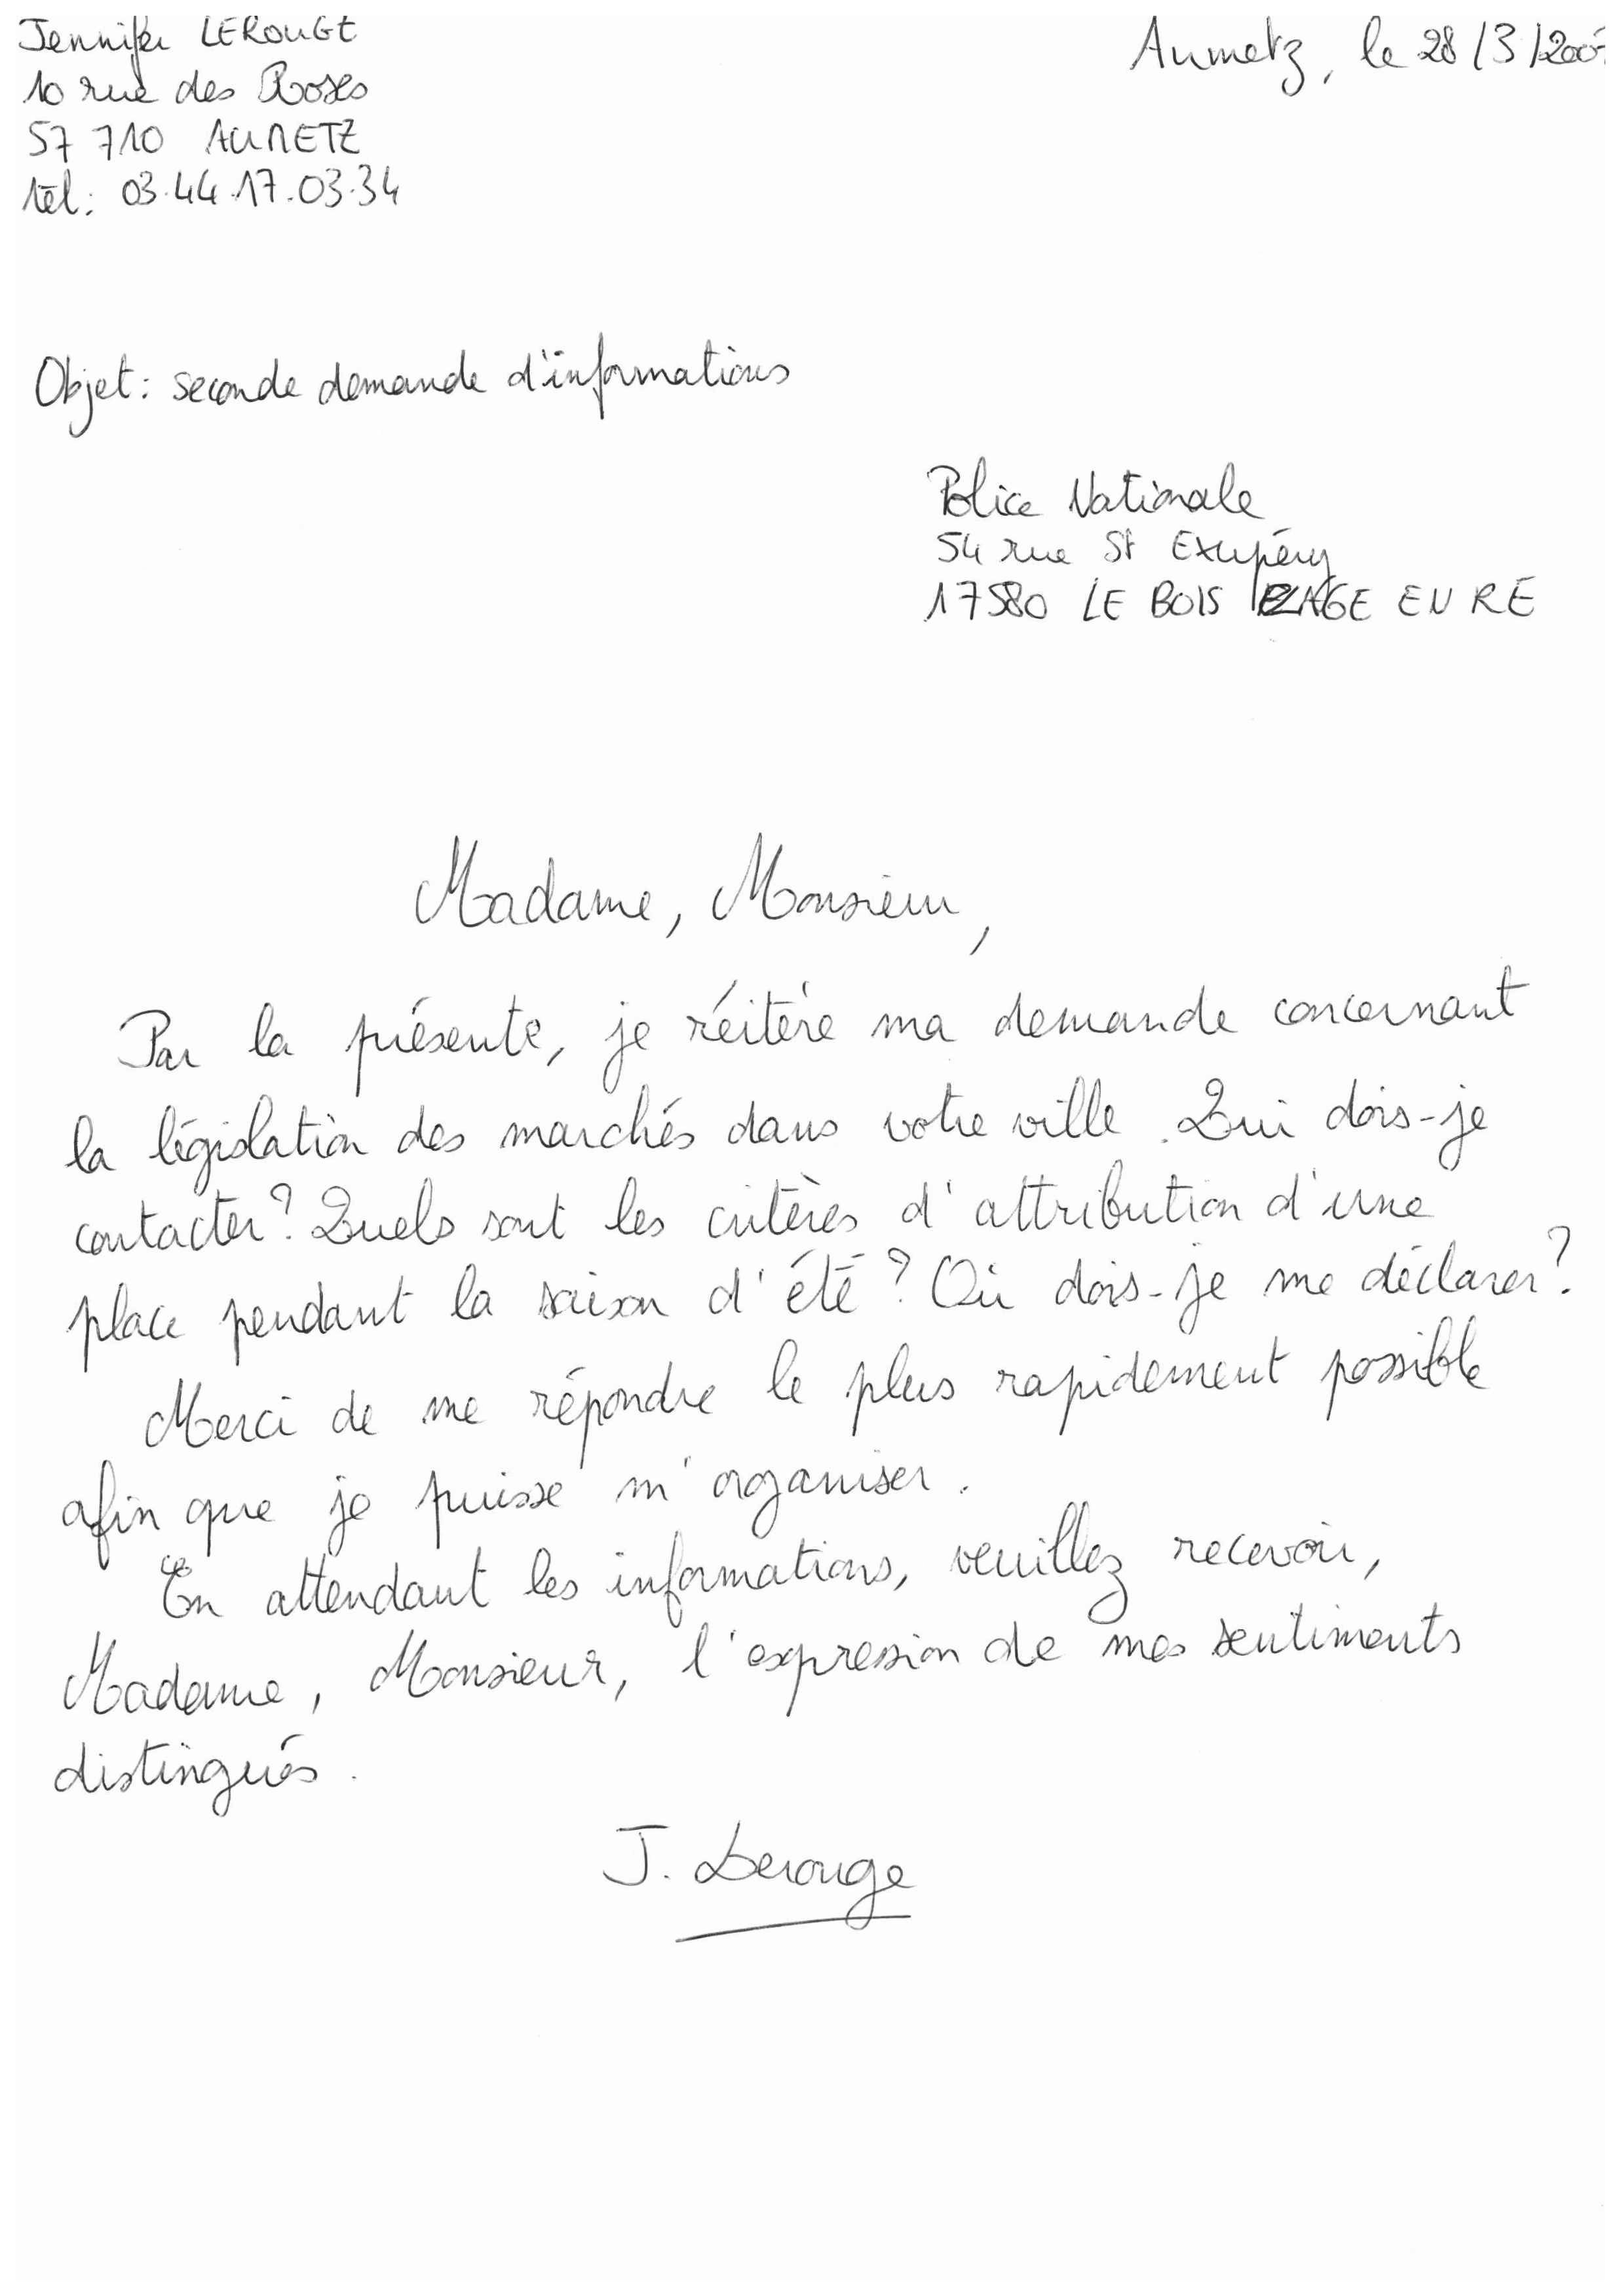 Jennifer LEROUGE
10 rue des Roses
57 710 AUMETZ
tél: 03.44.17.03.34
Aumetz, le 28/3/200
Objet: seconde demande d'informations
Police Nationale
54 rue St Exupéry
17580 LE BOIS PLAGE EN RE
Madame, Monsieur,
Par la présente, je réitère ma demande concernant
la législation des marchés dans votre ville. Qui dois-je
contacter? Quels sont les critères d'attribution d'une
place pendant la saison d'été? Où dois-je me déclarer?
Merci de me répondre le plus rapidement possible
afin que je puisse m'organiser.
En attendant les informations, veuillez recevoir,
Madame, Monsieur, l'expression de mes sentiments
distingués.
J. Lerouge